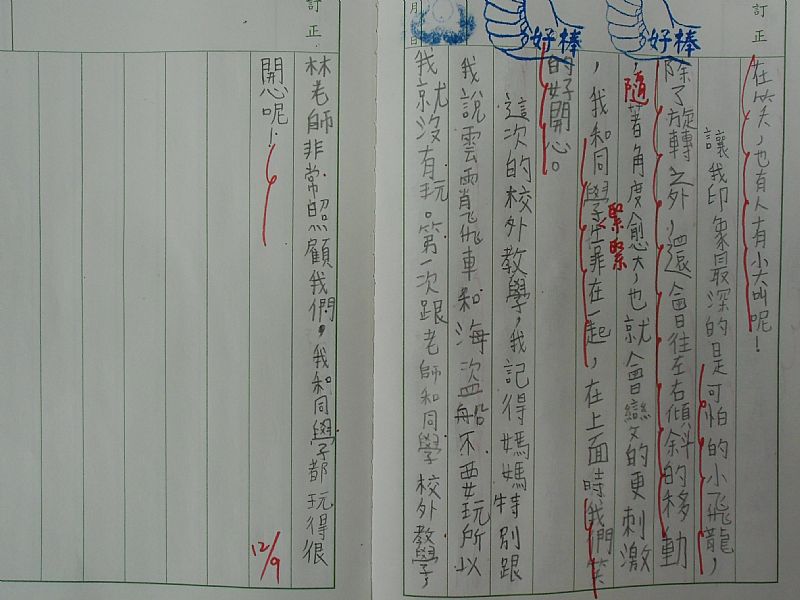 訂正
好棒
好棒
月
日
在笑,也有人有小大叫呢!
讓我印象最深的是可怕的小飛龍,
除了旋轉之外,還會往左右傾斜的移動
,隨著角度愈大,也就會變的更刺激
,我和同學緊緊靠在一起,在上面時,我們笑
的好開心。
這次的校外教學,我記得媽媽特別跟
我說雲霄飛車和海盜船不要玩所以
我就沒有玩。第一次跟老師和同學校外教學,
訂正
林老師非常照顧我們,我和同學都玩得很
開心呢!
12/9